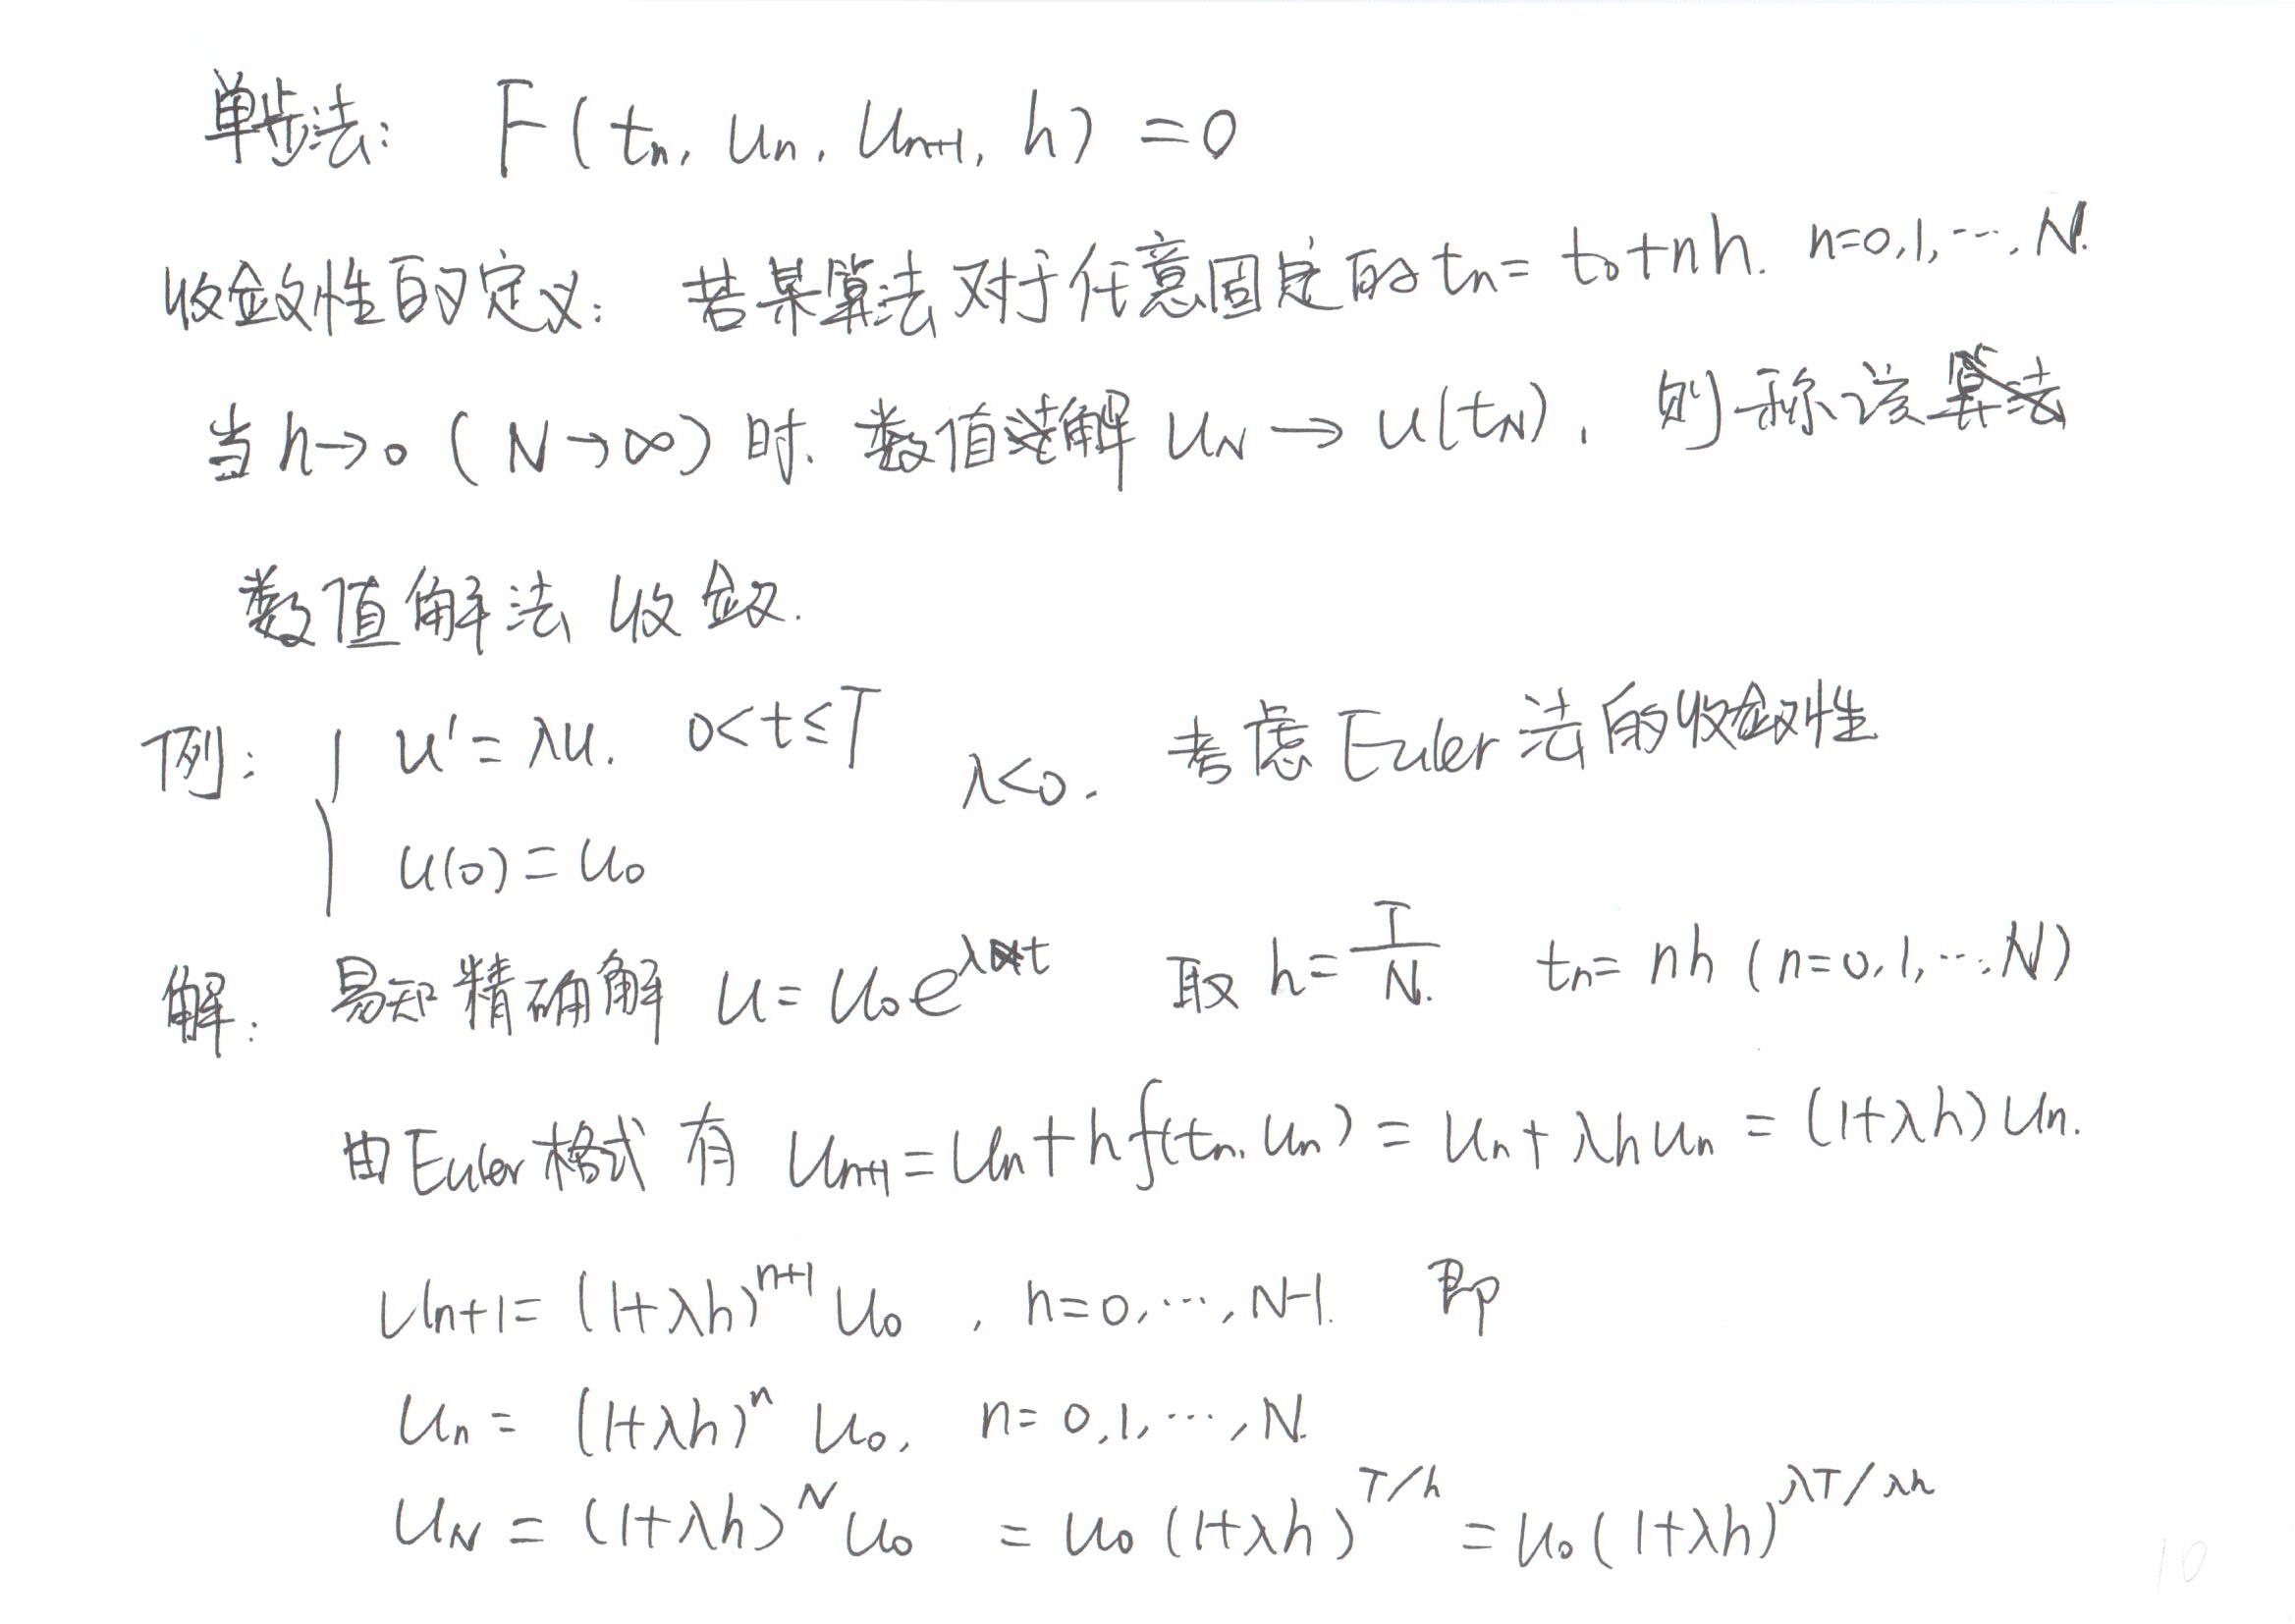 单步法: F(tn, un, un+1, h) = 0
收敛性的定义: 若某算法对于任意固定的 tn = t0+nh. n=0,1,…,N.
当 h→0 (N→∞) 时. 数值解 uN → u(tN), 则称该
数值解法收敛.
例: { u' = λu. 0<t≤T λ<0. 考虑 Euler 法的收敛性
u(0) = u0
解: 易知精确解 u = u0 e^{λt} 取 h = T/N. tn = nh (n=0,1,…,N)
由 Euler 格式有 un+1 = un + h f(tn, un) = un + λh un = (1+λh) un.
un+1 = (1+λh)^{n+1} u0, n=0,…,N-1. 即
un = (1+λh)^n u0, n=0,1,…,N.
uN = (1+λh)^N u0 = u0 (1+λh)^{T/h} = u0 (1+λh)^{λT/λh}
10